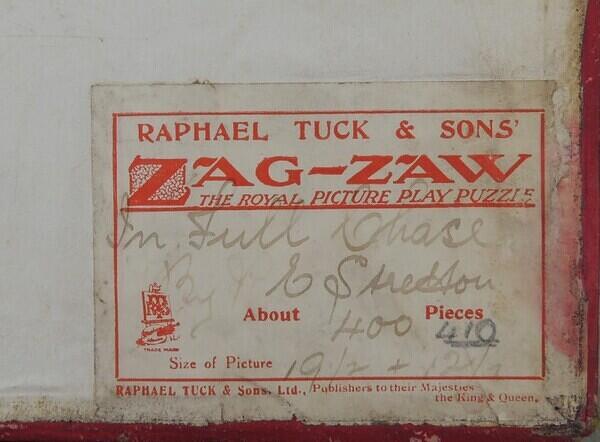 RAPHAEL TUCK & SONS'
ZAG-ZAW
THE ROYAL PICTURE PLAY PUZZLE
In Full Chase
By E Stretton
About 400 Pieces 410
TRADE MARK
Size of Picture 19½ +
RAPHAEL TUCK & Sons. Ltd., Publishers to their Majesties
the King & Queen.